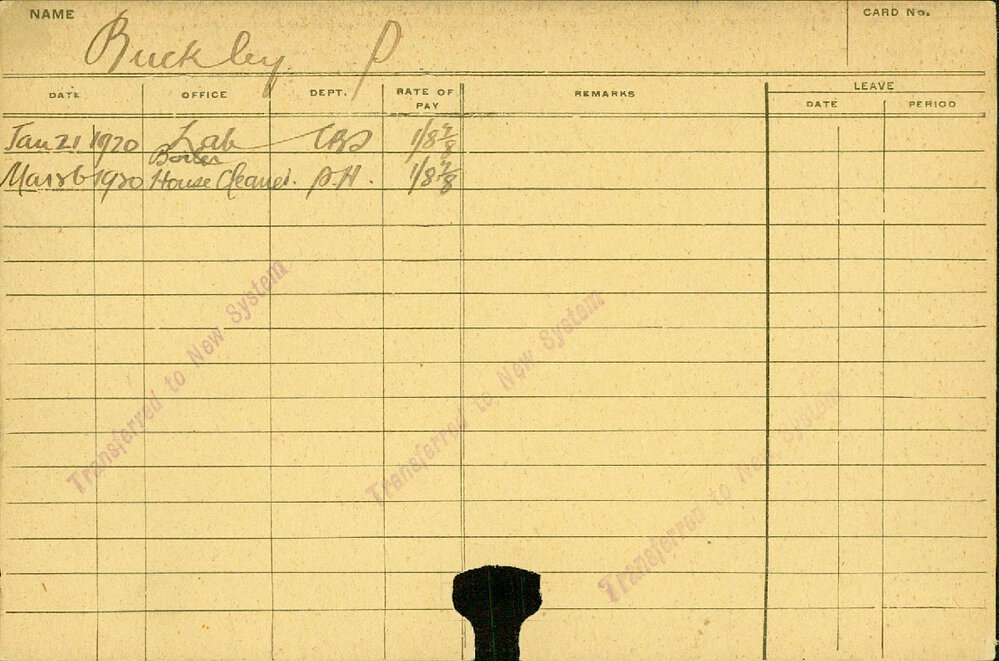 NAME
CARD No.
Buckley P
DATE OFFICE DEPT. RATE OF PAY REMARKS LEAVE
DATE PERIOD
Jan 21 1920 Lab 1/8 7/8
Boiler
Mar 26 1920 House Cleaner. P.H. 1/8 7/8
Transferred to New System
Transferred to New System
Transferred to New System